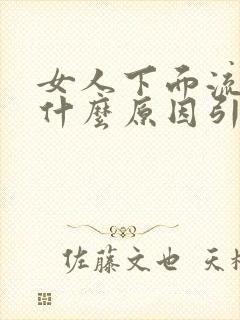 女人下面流
什麼原因引
佐藤文也 天